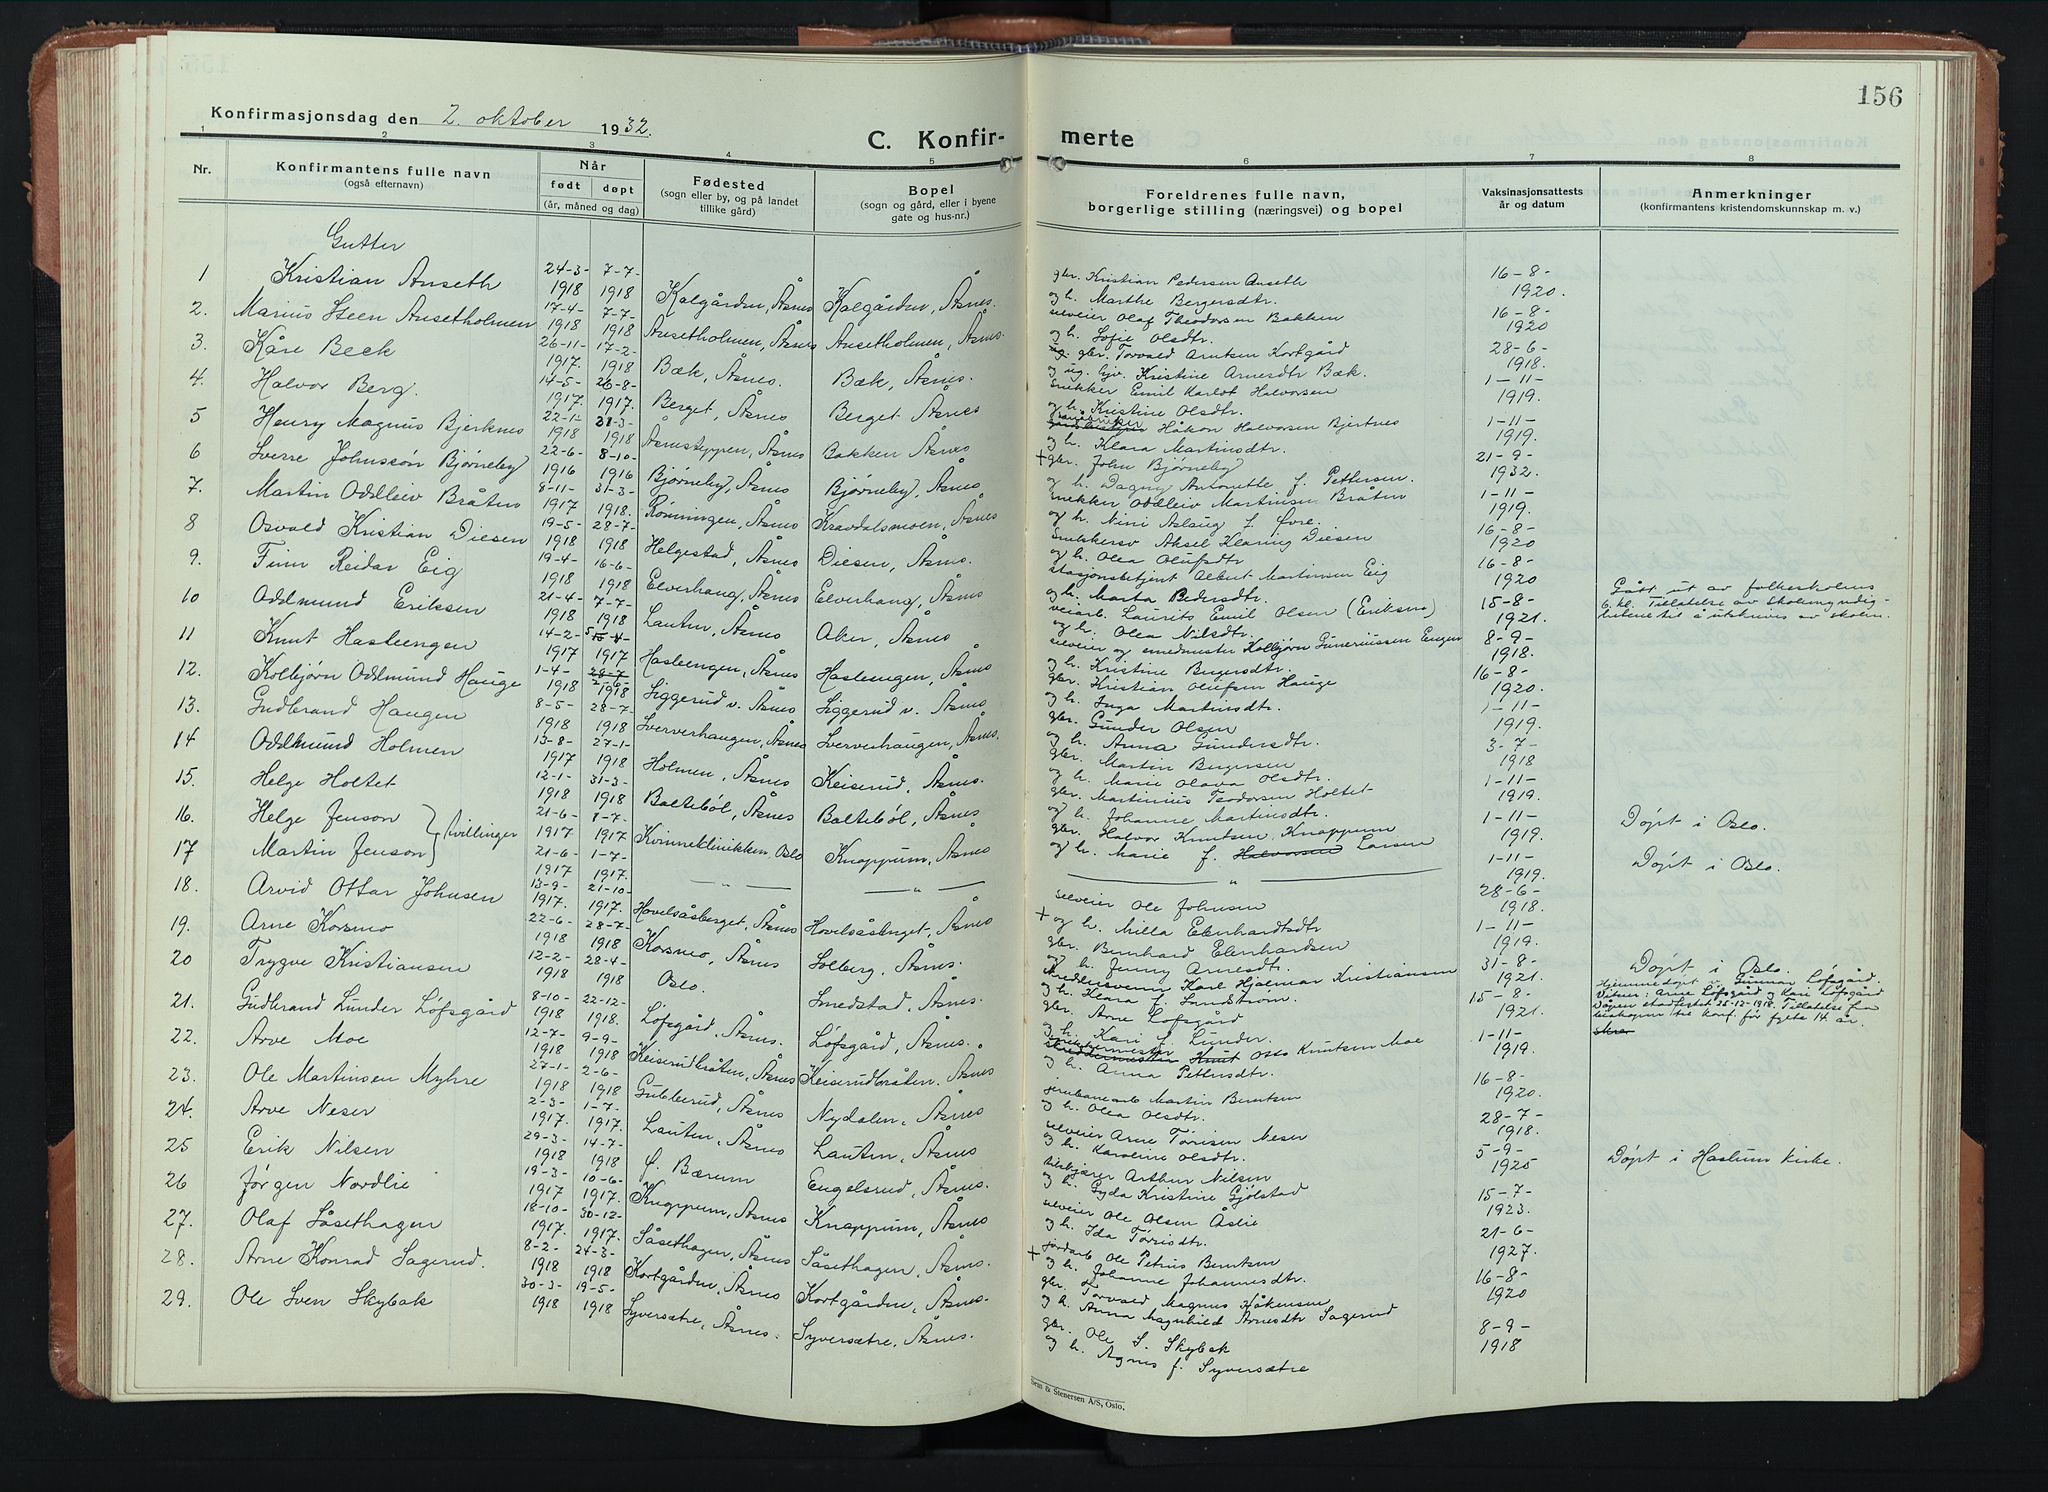 156
Konfirmasjonsdag den 2. oktober 1932.
C. Konfir- merte
1 2 3 4 5 6 7 8
Nr. Konfirmantens fulle navn (også efternavn) Når født døpt (år, måned og dag) Fødested (sogn eller by, og på landet tillike gård) Bopel (sogn og gård, eller i byene gate og hus-nr.) Foreldrenes fulle navn, borgerlige stilling (næringsvei) og bopel Vaksinasjonsattests år og datum Anmerkninger (konfirmantens kristendomskunnskap m. v.)
Gutter
1 Kristian Anseth 24-3-1918 7-7-1918 Kalgården, Åsnes Kalgården, Åsnes. gbr. Kristian Pedersen Anseth og h. Marthe Bergersdtr. 16-8-1920.
2. Marius Steen Ansetholmen 17-4-1918 7-7-1918 Ansetholmen, Åsnes Ansetholmen, Åsnes. selveier Olaf Theodorsen Bakken og h. Sofie Olsdtr. 16-8-1920
3. Kåre Beck 26-11-1917. 17-2-1918 Bæk, Åsnes. Bæk, Åsnes. ug. gbr. Torvald Arntsen Kortgård og ug. Kristine Arnesdtr. Bæk. 28-6-1918.
4. Halvor Berg. 14-5-1917. 26-8-1917. Berget, Åsnes Berget, Åsnes snekker Emil Karlot Halvorsen og h. Kristine Olsdtr. 1-11-1919.
5 Henry Magnus Bjerknes 22-1-1918 31-3-1918 Åsnesteppen, Åsnes Bakken Åsnes Håkon Halvorsen Bjertnes og h. Klara Martinsdtr. 1-11-1919.
6 Sverre Johnssøn Bjørneby 22-6-1916 8-10-1916 Bjørneby, Åsnes Bjørneby, Åsnes + gbr. John Bjørneby og h. Dagny Antonette f. Pettersen. 21-9-1932.
7. Martin Oddleiv Bråten 8-11-1917 31-3-1918. Rønningen, Åsnes Kravdalsmoen, Åsnes snekker Oddleiv Martinsen Bråten og h. Nini Aslaug f. Øvre. 1-11-1919.
8 Osvald Kristian Diesen 19-5-1918 28-7-1918 Helgestad, Åsnes Diesen, Åsnes. Aksel Klaring Diesen og h. Olea Olufsdtr. 16-8-1920
9. Finn Reidar Eig 19-4-1918 16-6-1918 Elverhaug, Åsnes Elverhaug, Åsnes stasjonsbetjent Albert Martinsen Eig og h. Marta Pedersdtr. 16-8-1920
10 Oddmund Eriksen 21-4-1918 7-7-1918 Lauten, Åsnes Aker, Åsnes veiarb. Laurits Emil Olsen (Eriksen) og h. Olea Nilsdtr. 15-8-1921. Gått ut av folkeskolens 6. kl. Tillatelse av skolemyndig-hetene til å utskrives av skolen.
11 Knut Hasleengen 14-2-1917 5-4-1917 Hasleengen, Åsnes Hasleengen, Åsnes selveier og smedmester Kolbjørn Gunerinssen Engen og h. Kristine Bergersdtr. 8-9-1918.
12. Kolbjørn Oddmund Hauge 1-4-1918 28-7 2-6-1918 Siggerud v. Åsnes Siggerud v. Åsnes gbr. Kristian Olufsen Hauge og h. Inga Martinsdtr. 16-8-1920.
13. Gudbrand Haugen 8-5-1918 28-7-1918 Sververhaugen, Åsnes Sververhaugen, Åsnes. gbr. Gunder Olsen og h. Anna Gundersdtr. 1-11-1919.
14 Oddmund Holmen 13-8-1917 27-1-1918 Holmen, Åsnes Keiserud, Åsnes. gbr. Martin Bergersen og h. Marie Olava Olsdtr. 3-7-1918
15. Helge Holtet 12-1-1918 31-3-1918 Baltebøl, Åsnes Baltebøl, Åsnes gbr. Martinius Teodorsen Holtet og h. Johanne Martinsdtr. 1-11-1919.
16. Helge Jenson } tvillinger 21-6-1917 8-7-1917 Kvinneklinikken, Oslo Knappum, Åsnes gbr. Halvor Knutsen Knappum og h. Marie f. Halvorsen Larsen 1-11-1919. Døpt i Oslo.
17 Martin Jenson 21-6-1917 1-7-1917. — " — — " — — " — 1-11-1919. Døpt i Oslo.
18. Arvid Ottar Johnsen 13-9-1917. 21-10-1917. Hovelsåsberget, Åsnes Hovelsåsberget, Åsnes selveier Ole Johnsen + og h. Milla Eberhardtsdtr 28-6-1918.
19. Arne Korsmo 22-6-1918 28-7-1918 Korsmo, Åsnes Solberg, Åsnes. gbr. Bernhard Eberhardsen og h. Jenny Arnesdtr. 1-11-1919.
20 Trygve Kristiansen 12-2-1918 28-4-1918 Oslo. Smedstad, Åsnes Karl Hjalmar Kristiansen og h. Klara f. Sundstrøm. 31-8-1921. Døpt i Oslo.
21. Gudbrand Lunder Løfsgård 8-10-1918 22-12-1918. Løfsgård, Åsnes. Løfsgård, Åsnes. gbr. Arne Løfsgård og h. Kari f. Lunder. 15-8-1921. Hjemmedøpt av Gunnar Løfsgård. Vitner: Arne Løfsgård og Kari Løfsgård Dåpen stadfestet 25-12-1918. Tillatelse fra biskopen til konf. før fylte 14 år.
22. Arve Moe 12-7-1918 9-9-1918 Keiserudbråten, Åsnes Keiserudbråten. Åsnes Knut Otto Knutsen Moe og h. Anna Pettersdtr. 1-11-1919
23. Ole Martinsen Myhre 27-1-1918 2-6-1918 Gubberud, Åsnes Nydalen, Åsnes jernbanearb Martin Berntsen og h. Olea Olsdtr. 16-8-1920.
24. Arve Neser 2-3-1917. 1-7-1917. Lauten, Åsnes Lauten, Åsnes selveier Arne Tørisen Neser og h. Karoline Olsdtr. 28-7-1918.
25 Erik Nilsen 29-3-1918 14-7-1918 f. Bærum Engelsrud, Åsnes. Arthur Nilsen og h. Gyda Kristine Gjølstad 5-9-1925 Døpt i Haslum kirke.
26 Jørgen Nordlie 19-3-1917 10-6-1917. Knappum, Åsnes Knappum, Åsnes selveier Ole Olsen Åslie og h. Ida Tørrisdtr. 15-7-1923.
27. Olaf Såsethagen 18-10-1917. 30-12-1917. Såsethagen, Åsnes Såsethagen, Åsnes. jordarb Ole Petrus Berntsen + og h. Johanne Johannesdtr. 21-6-1927.
28. Arne Konrad Sagerud. 8-2-1918 24-3-1918 Kortgården, Åsnes Kortgården, Åsnes. gbr. Torvald Magnus Håkensen og h. Anna Magnhild Arnesdtr Sagerud 16-8-1920
29. Ole Sven Skybak 30-3-1918 19-5-1918 Syversætre, Åsnes. Syversætre, Åsnes. gbr. Ole S. Skybak og h. Agnes f. Syversætre 8-9-1918
& Stenersen A/S, Oslo.